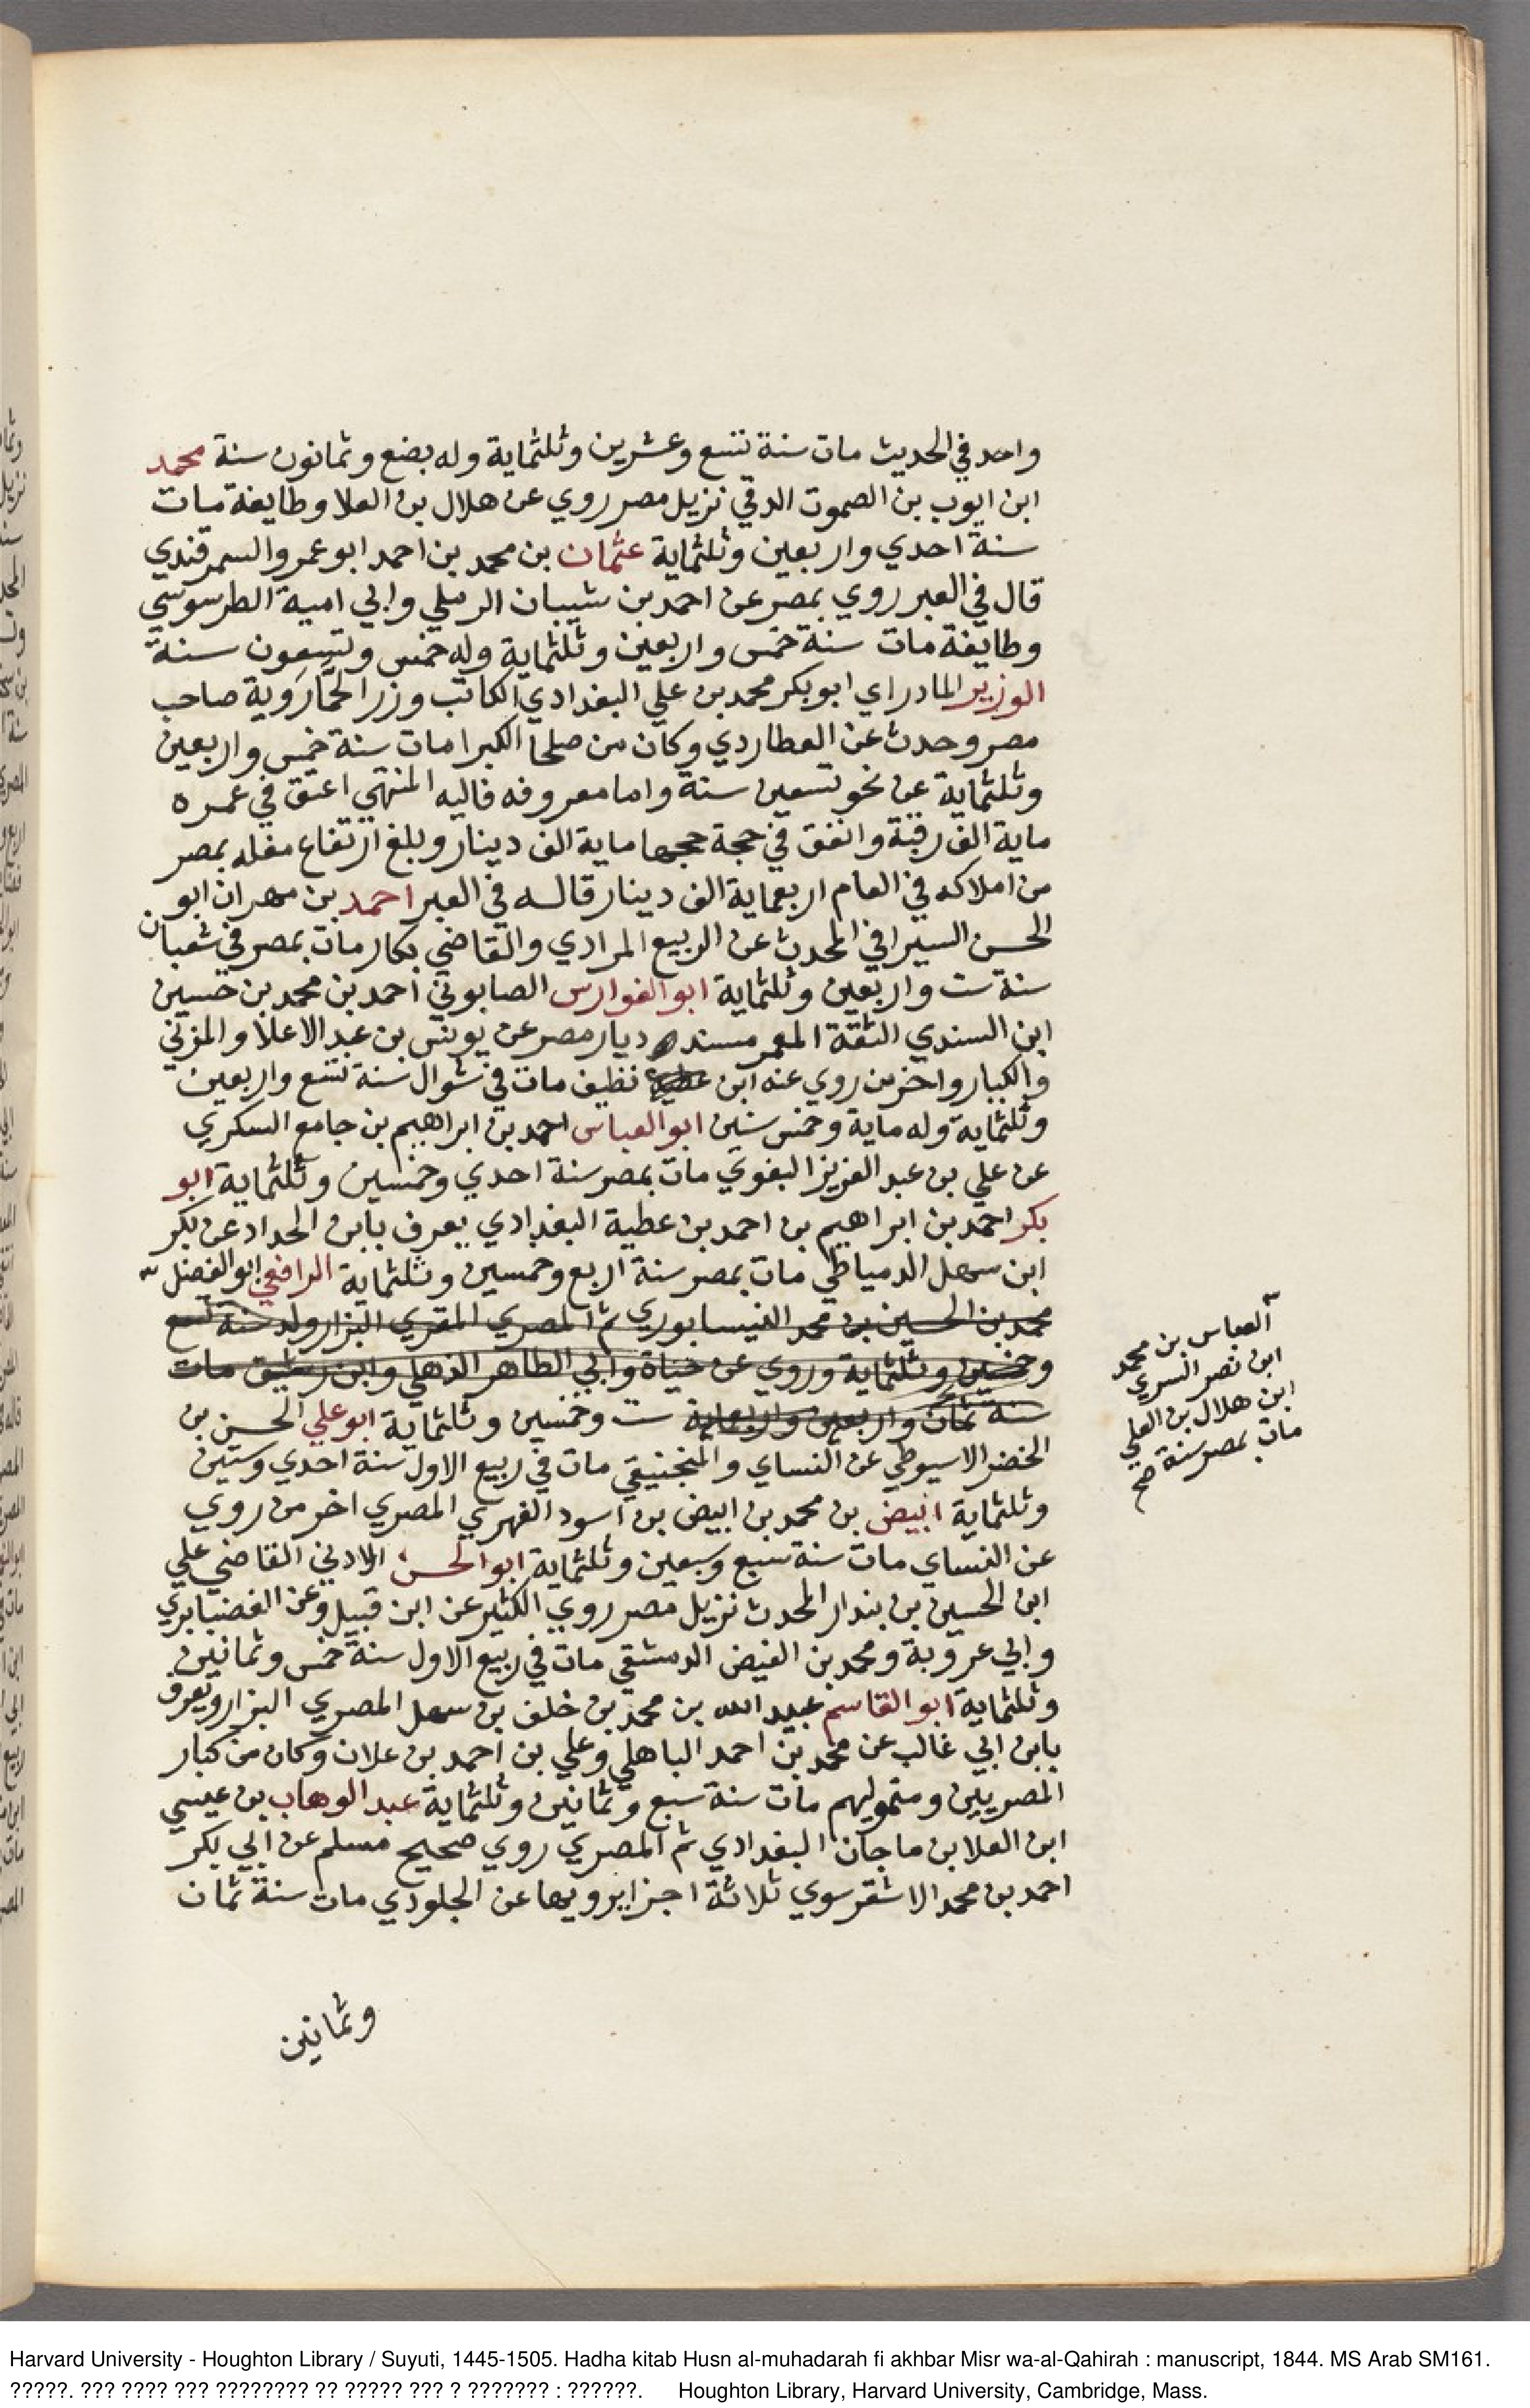 واحد في الحديث مات سنة تسع وعشرين وثلثماية وله بضع وثمانون سنة محمد
ابن ايوب بن الصموت الدقي نزيل مصر روي عن هلال بن العلا وطايفة مات
سنة احدي واربعين وثلثماية عثمان بن محمد بن احمد ابو عمرو السمرقندي
قال في العبر روي بمصر عن احمد بن شيبان الرملي وابي امية الطرسوسي
وطايفة مات سنة خمس واربعين وثلثماية وله خمس وتسعون سنة
الوزير المادراي ابو بكر محمد بن علي البغدادي الكاتب وزر الخمارويه صاحب
مصر وحدث عن العطاردي وكان من صلحا الكبرا مات سنة خمس واربعين
وثلثماية عن نحو تسعين سنة واما معروفه فاليه المنتهي اعتق في عمره
ماية الف رقبة وانفق في حجة حجها ماية الف دينار وبلغ ارتفاع مغله بمصر
من املاكه في العام اربعماية الف دينار قاله في العبر احمد بن مهران ابو
الحسن السيرافي المحدث عن الربيع المرادي والقاضي بكار مات بمصر في شعبان
سنة ست واربعين وثلثماية ابو الفوارس الصابوني احمد بن محمد بن حسين
ابن السندي الثقة المعمر مسند ديار مصر عن يونس بن عبد الاعلا والمزني
والكبار واخر من روي عنه ابن نظيف مات في شوال سنة تسع واربعين
وثلثماية وله ماية وخمس سنين ابو العباس احمد بن ابراهيم بن جامع السكري
عن علي بن عبد العزيز البغوي مات بمصر سنة احدي وخمسين وثلثماية ابو
بكر احمد بن ابراهيم بن احمد بن عطية البغدادي يعرف بابن الحداد عن بكر
ابن سهل الدمياطي مات بمصر سنة اربع وخمسين وثلثماية الرافعي ابو الفضل
محمد بن الحسين بن محمد النيسابوري ثم المصري المقري البزار ولد سنة تسع
وخمسين وثلثماية وروي عن حياة وابي الطاهر الذهلي وابن رشيق مات
سنة ثمان واربعين واربعماية ست وخمسين وثلثماية ابو علي الحسن بن
الخضر الاسيوطي عن النساي والمنجنيقي مات في ربيع الاول سنة احدي وستين
وثلثماية ابيض بن محمد بن ابيض بن اسود الفهري المصري اخر من روي
عن النساي مات سنة سبع وسبعين وثلثماية ابو الحسن الادني القاضي علي
ابن الحسين بن بندار المحدث نزيل مصر روي الكثير عن ابن قبيل وعن الغضايري
وابي عروبة ومحمد بن الفيض الدمشقي مات في ربيع الاول سنة خمس وثمانين
وثلثماية ابو القاسم عبيد الله بن محمد بن خلف بن سهل المصري البزار ويعرف
بابن ابي غالب عن محمد بن احمد الباهلي وعلي بن احمد بن علان وكان من كبار
المصريين ومتموليهم مات سنة سبع وثمانين وثلثماية عبد الوهاب بن عيسي
ابن العلا بن ماجان البغدادي ثم المصري روي صحيح مسلم عن ابي بكر
احمد بن محمد الاشقر سوي ثلاثة اجزا يرويها عن الجلودي مات سنة ثمان
وثمانين
العباس بن محمد
ابن نصر السري
ابن هلال بن العلي
مات بمصر سنة صح
Harvard University - Houghton Library / Suyuti, 1445-1505. Hadha kitab Husn al-muhadarah fi akhbar Misr wa-al-Qahirah : manuscript, 1844. MS Arab SM161.
?????. ??? ???? ??? ???????? ?? ????? ??? ? ??????? : ??????. Houghton Library, Harvard University, Cambridge, Mass.